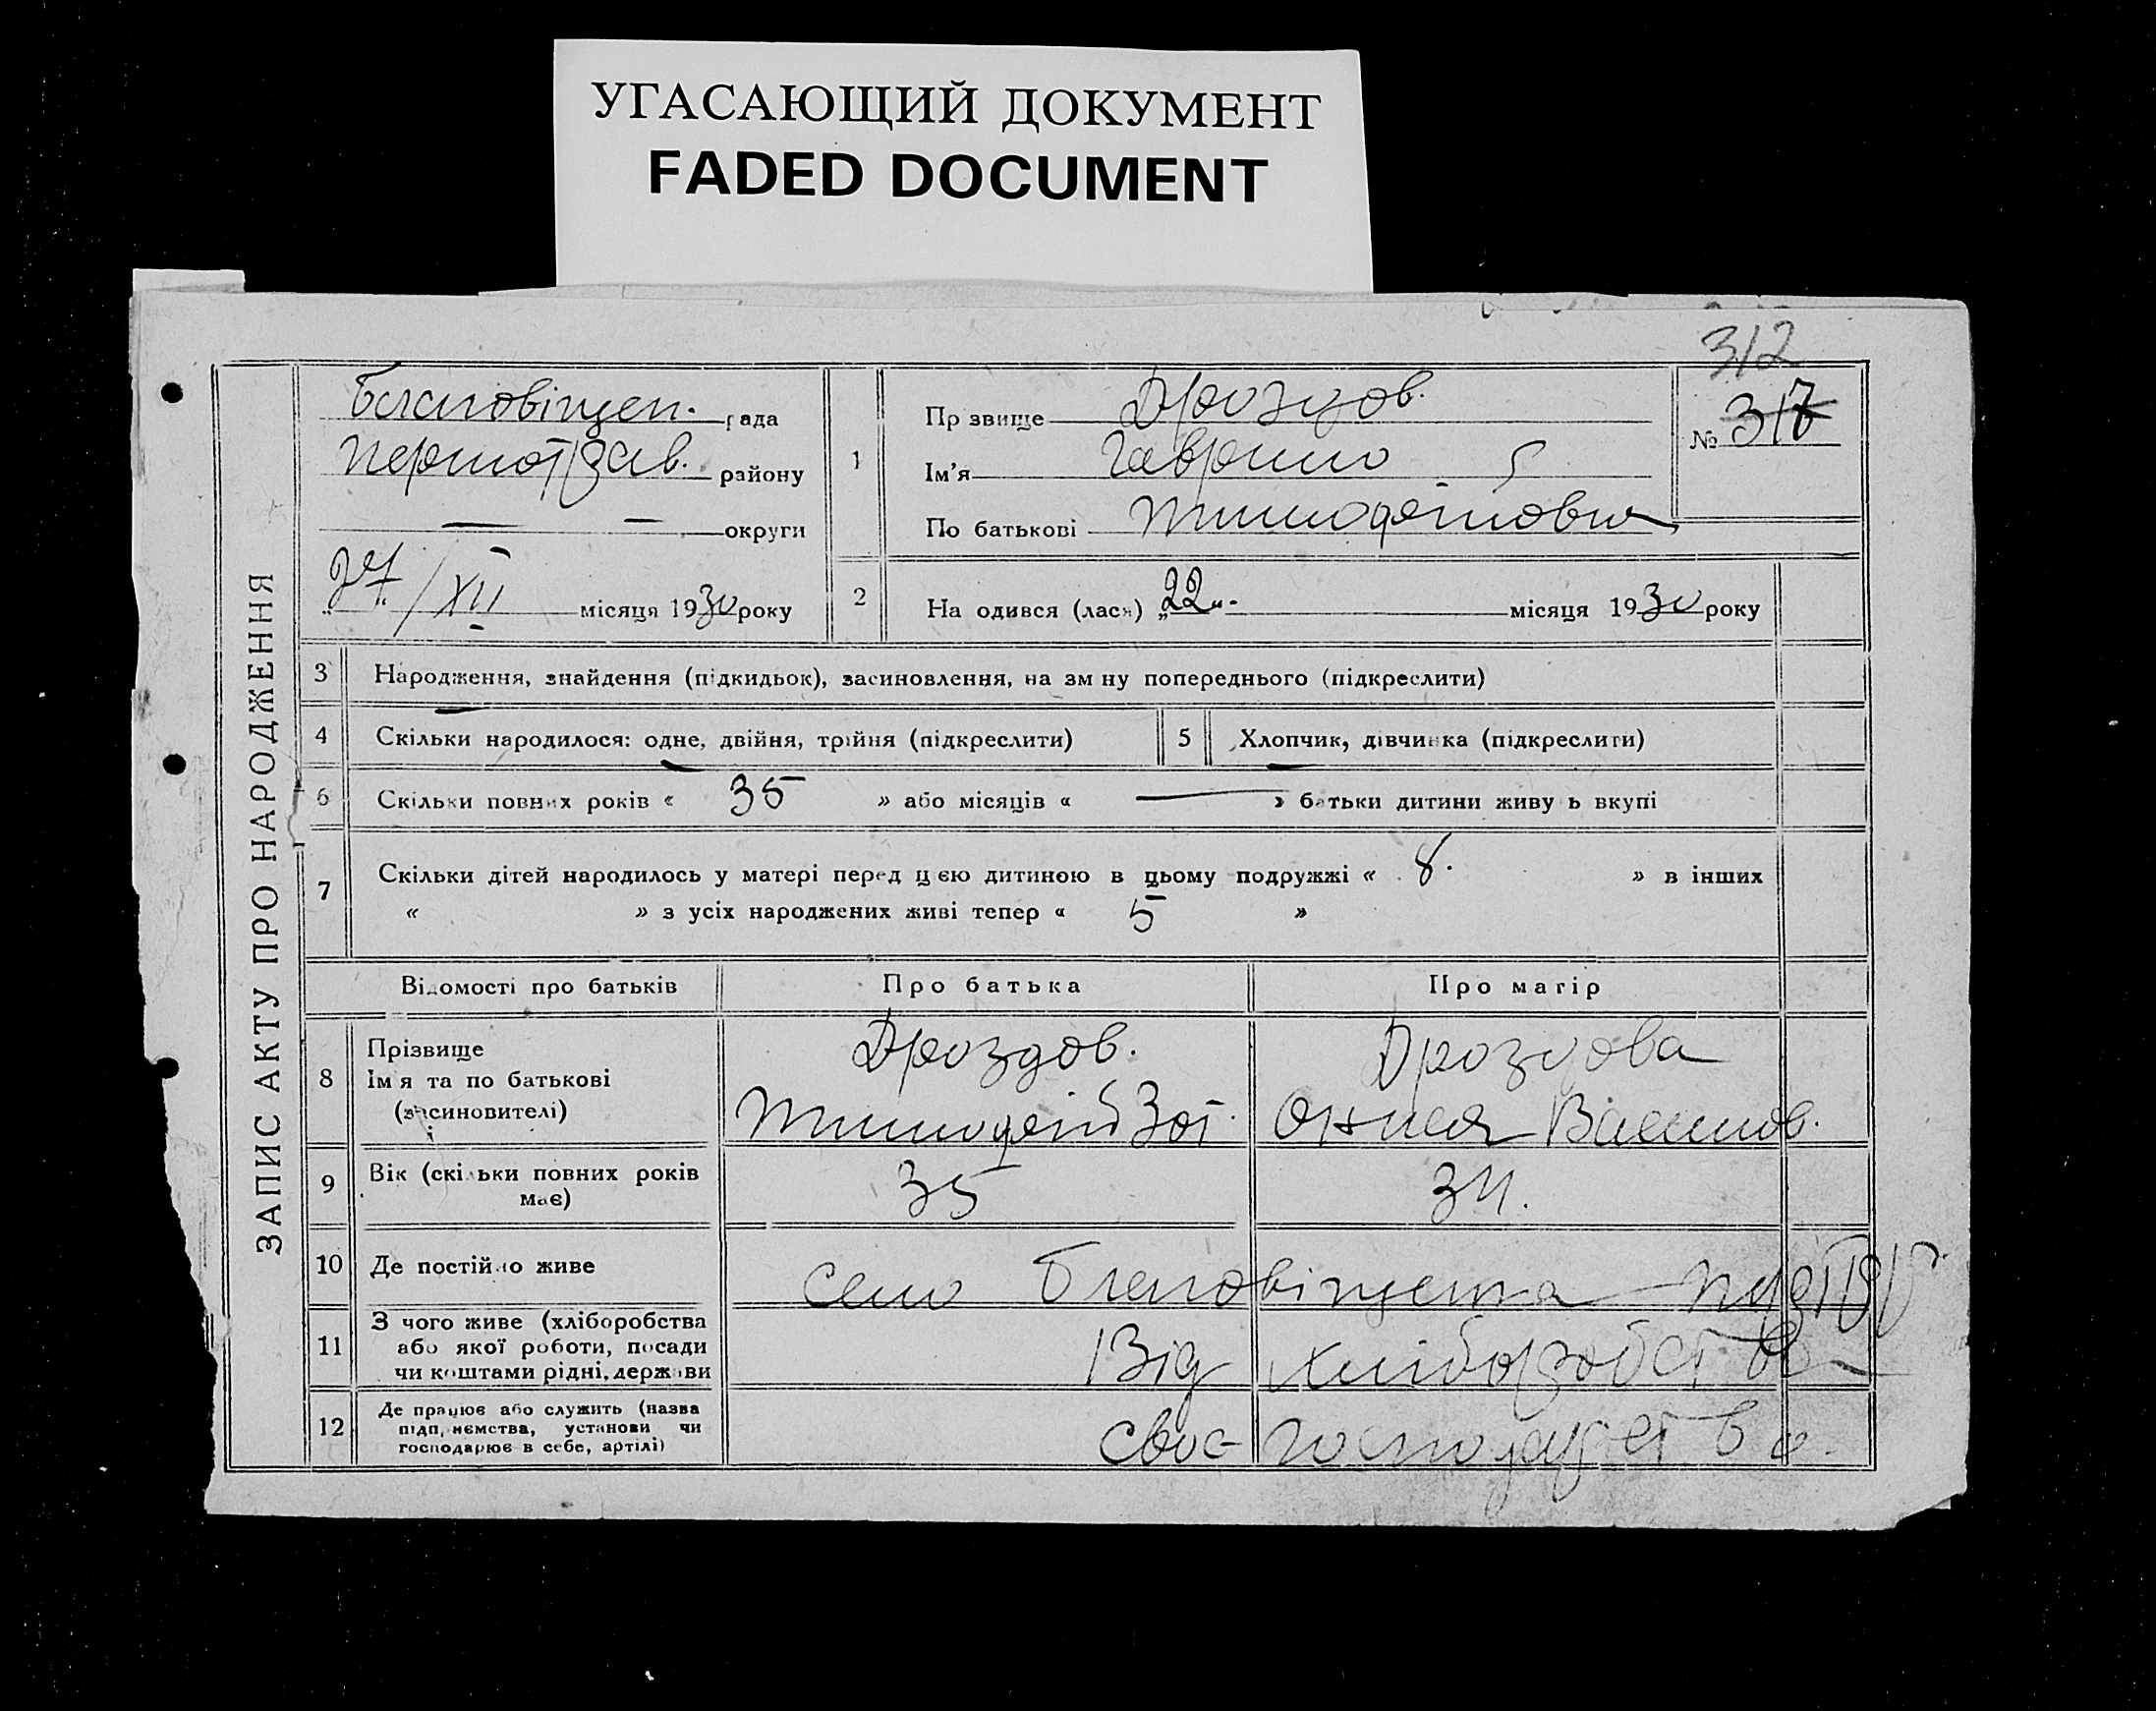 УГАСАЮЩИЙ ДОКУМЕНТ
FADED DOCUMENT
312
ЗАПИС АКТУ ПРО НАРОДЖЕННЯ
Благовіщен. рада
району
округи
/XII місяця 1930 року
1
Пр звище Дроздов.
Ім'я Гаврило
По батькові Тимофейович
№ 317
2
На одився (лася) „22" місяця 1930 року
3 Народження, знайдення (підкидьок), засиновлення, на зм ну попереднього (підкреслити)
4 Скільки народилося: одне, двійня, трійня (підкреслити) 5 Хлопчик, дівчинка (підкреслити)
6 Скільки повних років « 35 » або місяців « — » батьки дитини живу ь вкупі
7 Скільки дітей народилось у матері перед цією дитиною в цьому подружжі « 8. » в інших
« » з усіх народжених живі тепер « 5 »
Відомості про батьків Про батька Про матір
8 Прізвище
Ім я та по батькові
(засиновителі)
Дроздов.
Тимофей Зот.
Дроздова
9 Вік (скільки повних років
має)
35
34.
10 Де постійно живе село
11 З чого живе (хліборобства
або якої роботи, посади
чи коштами рідні, держави
Від хліборобства
12 Де працює або служить (назва
підп,иємства, установи чи
господарює в себе, артілі)
своє господарство.